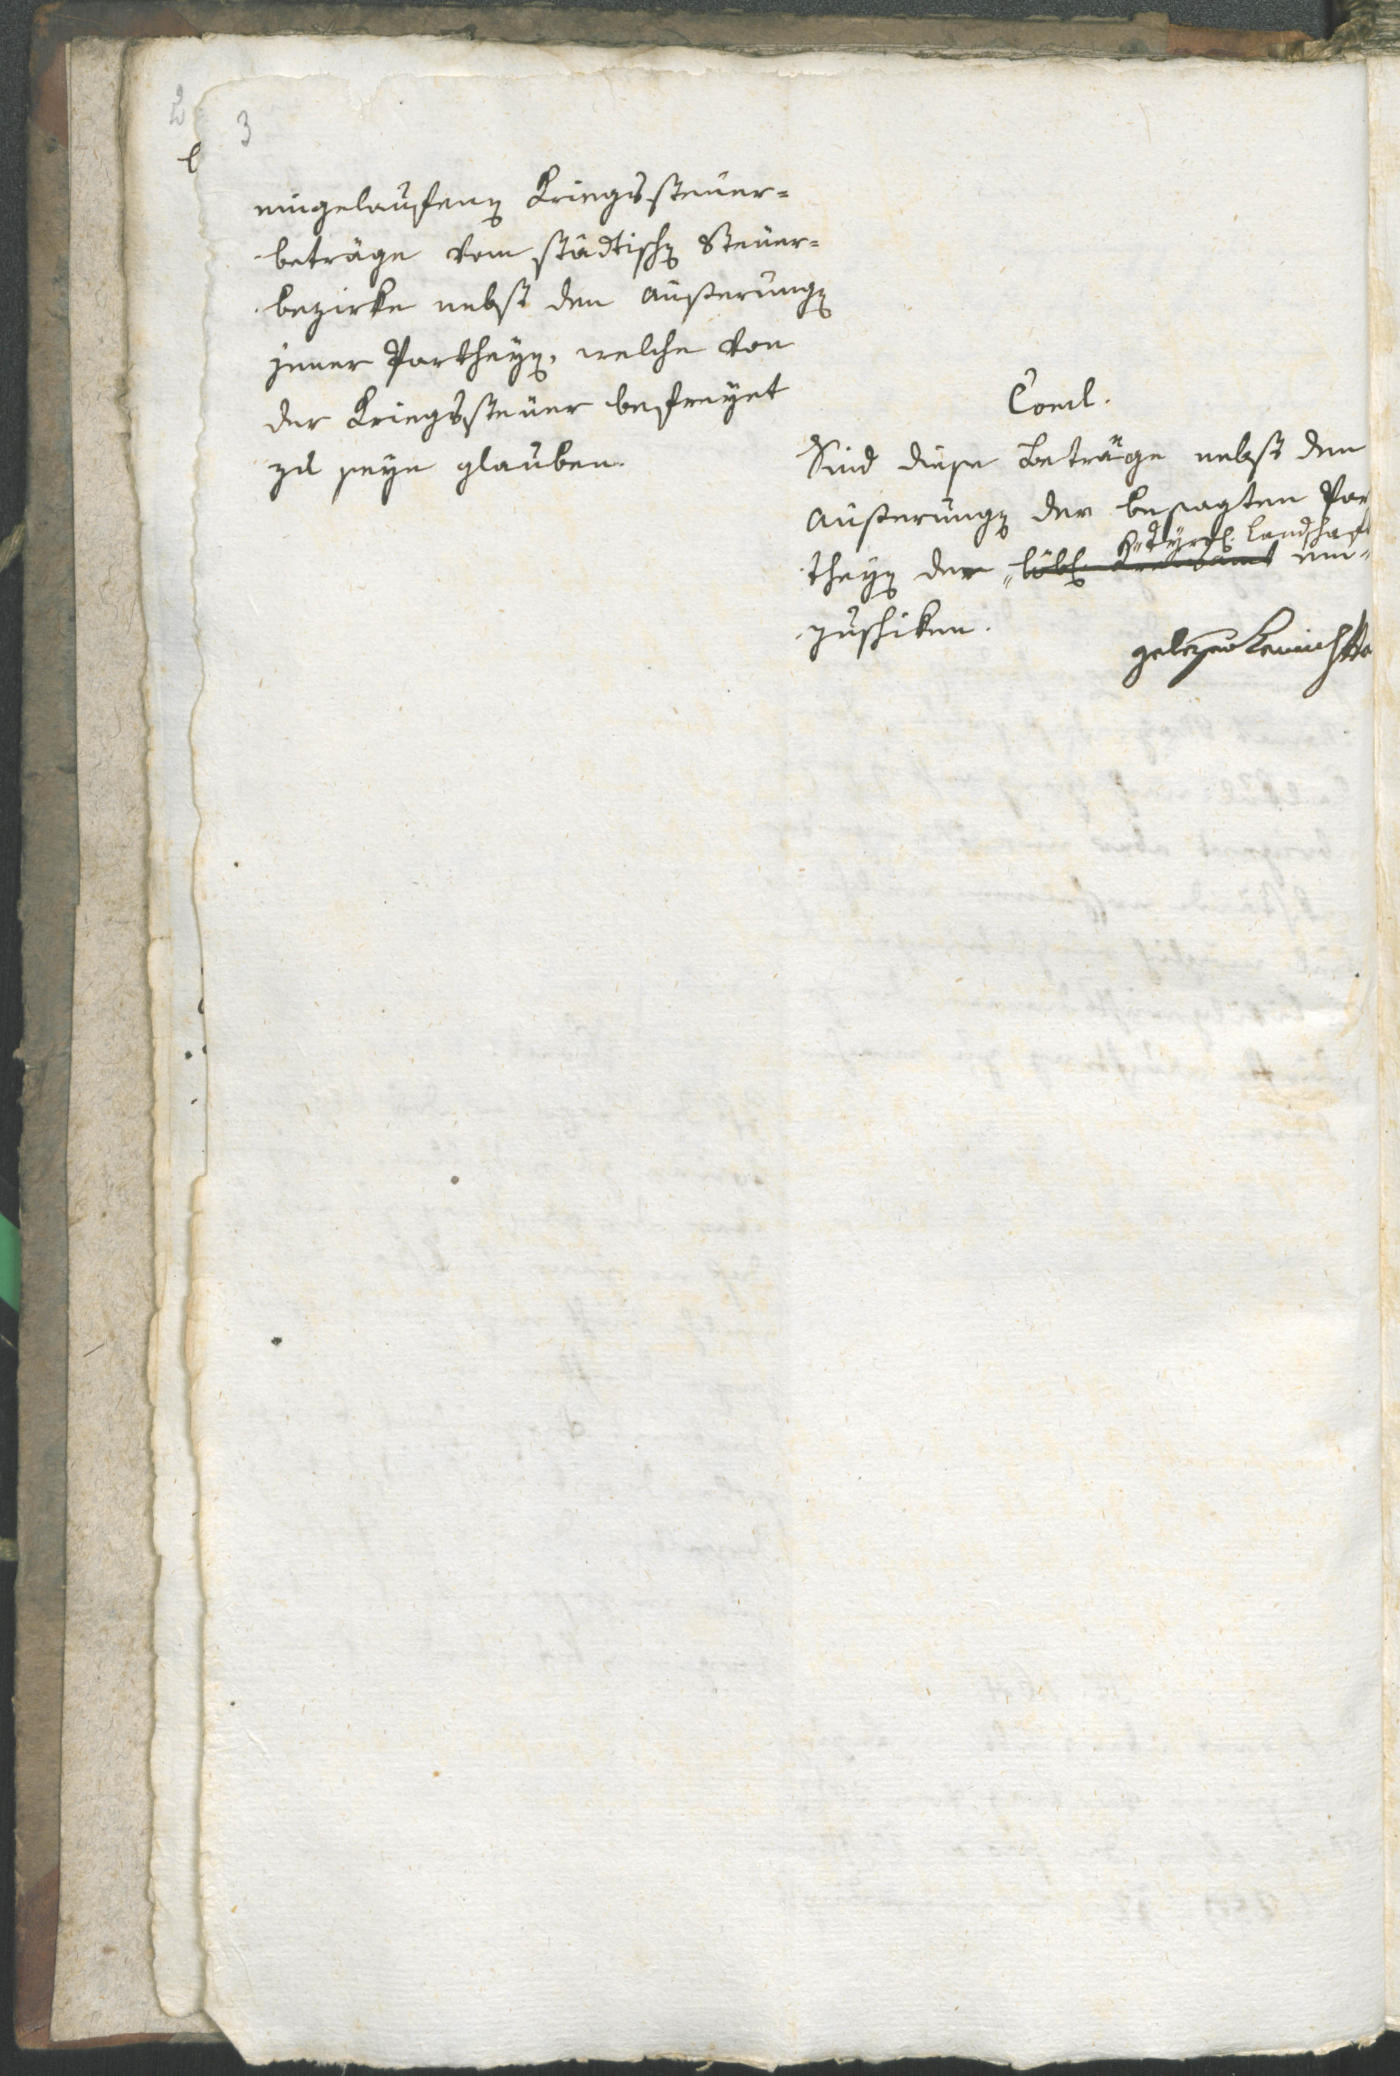 2
3
eingelaufenen Kriegssteuer-
beträge vom städtischen Steuer-
bezirke nebst den äusserungen
jener Partheyen, welche von
der Kriegssteuer befreyet
zu seyn glauben.
Concl.
Sind diese Beträge nebst den
äusserungen der besagten Par
theyen der löbl. Kreisamt ein-
tyrol. Landschaft
zuschiken.